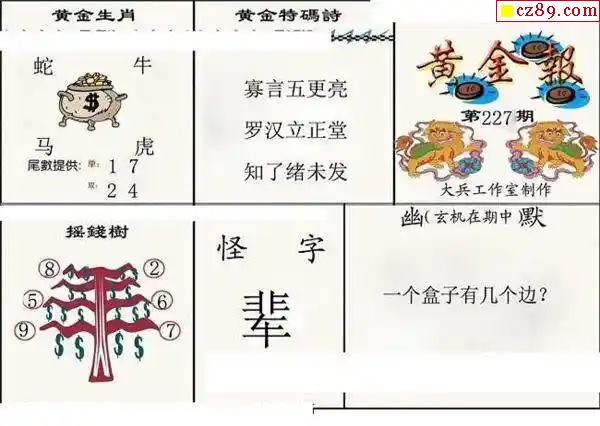 cz89.com
黄金生肖
蛇 牛
$
马 虎
尾數提供: 单: 1 7
双: 2 4
黄金特碼詩
寡言五更亮
罗汉立正堂
知了绪未发
黄金報
第227期
大兵工作室制作
摇錢樹
⑧ ②
⑤ ⑥
⑨ ⑦
$ $ $ $ $ $ $ $
怪 字
辈
幽(玄机在期中)默
一个盒子有几个边?